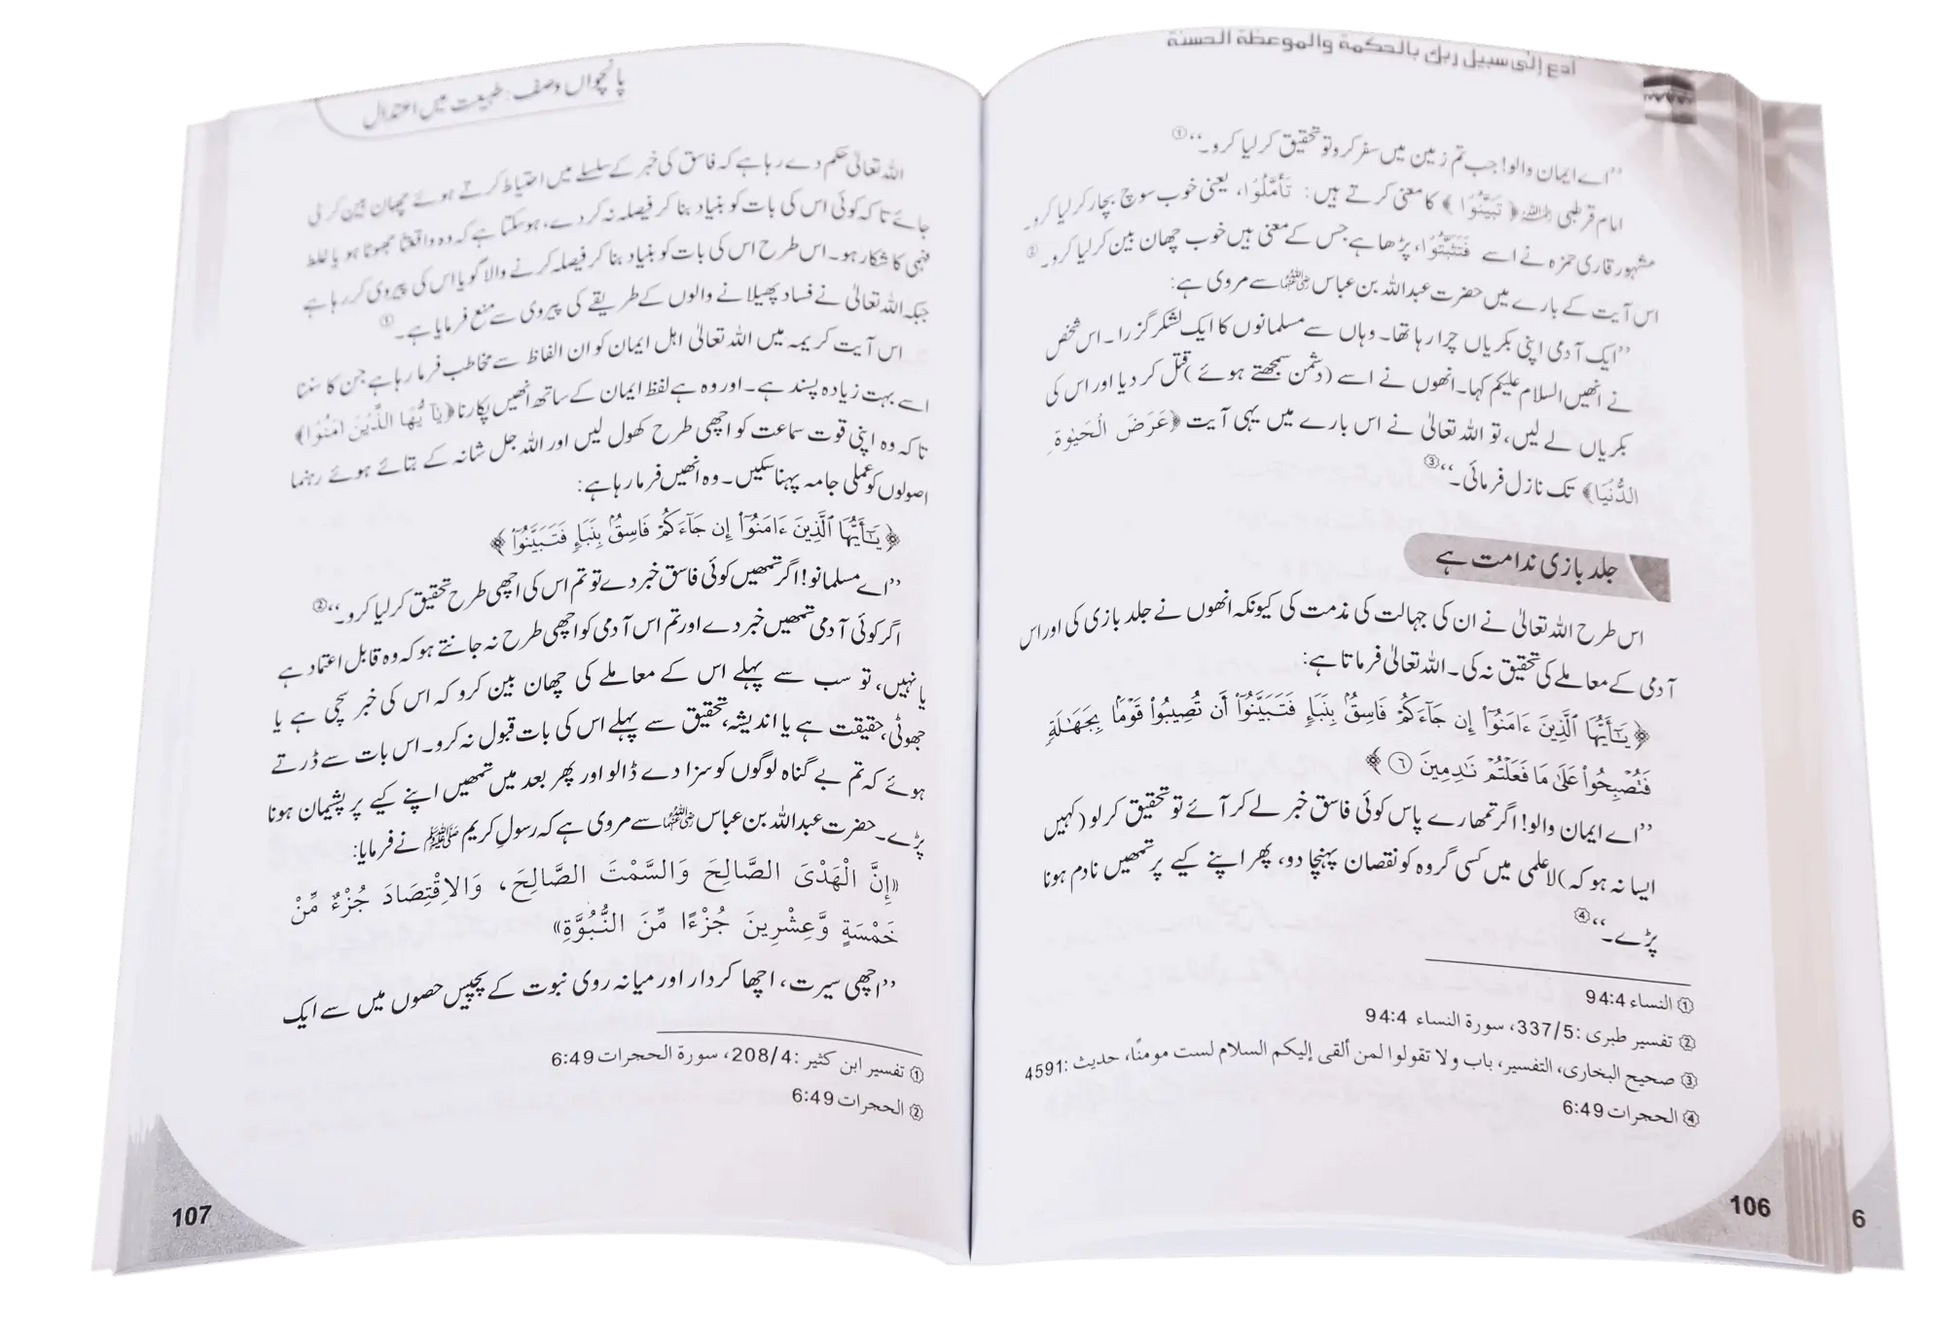 ادع إلى سبيل ربك بالحكمة والموعظة الحسنة
’’اے ایمان والو! جب تم زمین میں سفر کرو تو تحقیق کر لیا کرو۔‘‘①
امام قرطبی رحمہ اللہ ﴿تَبَيَّنُوْا﴾ کا معنی کرتے ہیں: تَأَمَّلُوْا، یعنی خوب سوچ بچار کر لیا کرو۔
مشہور قاری حمزہ نے اسے فَتَثَبَّتُوْا، پڑھا ہے جس کے معنی ہیں خوب چھان بین کر لیا کرو۔②
اس آیت کے بارے میں حضرت عبداللہ بن عباس رضی اللہ عنہما سے مروی ہے:
’’ایک آدمی اپنی بکریاں چرا رہا تھا۔ وہاں سے مسلمانوں کا ایک لشکر گزرا۔ اس شخص
نے انھیں السلام علیکم کہا۔ انھوں نے اسے (دشمن سمجھتے ہوئے) قتل کر دیا اور اس کی
بکریاں لے لیں، تو اللہ تعالیٰ نے اس بارے میں یہی آیت ﴿عَرَضَ الْحَيٰوةِ
الدُّنْيَا﴾ تک نازل فرمائی۔‘‘③
جلد بازی ندامت ہے
اس طرح اللہ تعالیٰ نے ان کی جہالت کی مذمت کی کیونکہ انھوں نے جلد بازی کی اور اس
آدمی کے معاملے کی تحقیق نہ کی۔ اللہ تعالیٰ فرماتا ہے:
﴿يَٰٓأَيُّهَا ٱلَّذِينَ ءَامَنُوٓا۟ إِن جَآءَكُمْ فَاسِقٌۢ بِنَبَإٍ فَتَبَيَّنُوٓا۟ أَن تُصِيبُوا۟ قَوْمًۢا بِجَهَٰلَةٍ
فَتُصْبِحُوا۟ عَلَىٰ مَا فَعَلْتُمْ نَٰدِمِينَ ٦﴾
’’اے ایمان والو! اگر تمھارے پاس کوئی فاسق خبر لے کر آئے تو تحقیق کر لو (کہیں
ایسا نہ ہو کہ) لاعلمی میں کسی گروہ کو نقصان پہنچا دو، پھر اپنے کیے پر تمھیں نادم ہونا
پڑے۔‘‘④
① النساء 94:4
② تفسیر طبری: 337/5، سورة النساء 94:4
③ صحیح البخاری، التفسیر، باب ولا تقولوا لمن ألقى إليكم السلام لست مومنًا، حدیث: 4591
④ الحجرات 6:49
106
6
پانچواں وصف: طبیعت میں اعتدال
اللہ تعالیٰ حکم دے رہا ہے کہ فاسق کی خبر کے سلسلے میں احتیاط کرتے ہوئے چھان بین کر لی
جائے تاکہ کوئی اس کی بات کو بنیاد بنا کر فیصلہ نہ کر دے، ہو سکتا ہے کہ وہ واقعتًا جھوٹا ہو یا غلط
فہمی کا شکار ہو۔ اس طرح اس کی بات کو بنیاد بنا کر فیصلہ کرنے والا گویا اس کی پیروی کر رہا ہے
جبکہ اللہ تعالیٰ نے فساد پھیلانے والوں کے طریقے کی پیروی سے منع فرمایا ہے۔①
اس آیت کریمہ میں اللہ تعالیٰ اہل ایمان کو ان الفاظ سے مخاطب فرما رہا ہے جن کا سننا
اسے بہت زیادہ پسند ہے۔ اور وہ ہے لفظ ایمان کے ساتھ انھیں پکارنا ﴿يٰٓاَيُّهَا الَّذِيْنَ اٰمَنُوْٓا﴾
تاکہ وہ اپنی قوت سماعت کو اچھی طرح کھول لیں اور اللہ جل شانہ کے بتائے ہوئے رہنما
اصولوں کو عملی جامہ پہنا سکیں۔ وہ انھیں فرما رہا ہے:
﴿يَٰٓأَيُّهَا ٱلَّذِينَ ءَامَنُوٓا۟ إِن جَآءَكُمْ فَاسِقٌۢ بِنَبَإٍ فَتَبَيَّنُوٓا۟﴾
’’اے مسلمانو! اگر تمھیں کوئی فاسق خبر دے تو تم اس کی اچھی طرح تحقیق کر لیا کرو۔‘‘②
اگر کوئی آدمی تمھیں خبر دے اور تم اس آدمی کو اچھی طرح نہ جانتے ہو کہ وہ قابل اعتماد ہے
یا نہیں، تو سب سے پہلے اس کے معاملے کی چھان بین کرو کہ اس کی خبر سچی ہے یا
جھوٹی، حقیقت ہے یا اندیشہ، تحقیق سے پہلے اس کی بات قبول نہ کرو۔ اس بات سے ڈرتے
ہوئے کہ تم بے گناہ لوگوں کو سزا دے ڈالو اور پھر بعد میں تمھیں اپنے کیے پر پشیمان ہونا
پڑے۔ حضرت عبداللہ بن عباس رضی اللہ عنہما سے مروی ہے کہ رسول کریم ﷺ نے فرمایا:
«إِنَّ الْهَدْىَ الصَّالِحَ وَالسَّمْتَ الصَّالِحَ، وَالِاقْتِصَادَ جُزْءٌ مِّنْ
خَمْسَةٍ وَّعِشْرِينَ جُزْءًا مِّنَ النُّبُوَّةِ»
’’اچھی سیرت، اچھا کردار اور میانہ روی نبوت کے پچیس حصوں میں سے ایک
① تفسیر ابن کثیر: 208/4، سورة الحجرات 6:49
② الحجرات 6:49
107